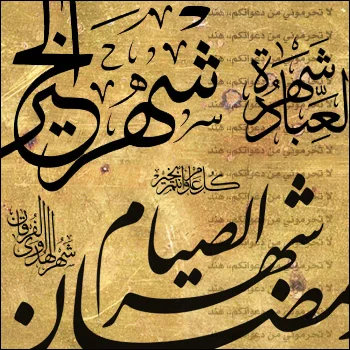 شهر الخير
شهر العبادة
كل عام وأنتم بخير
شهر الصيام
شهر الهدى والفرقان
رمضان
لا تحرموني من دعواتكم،، هند